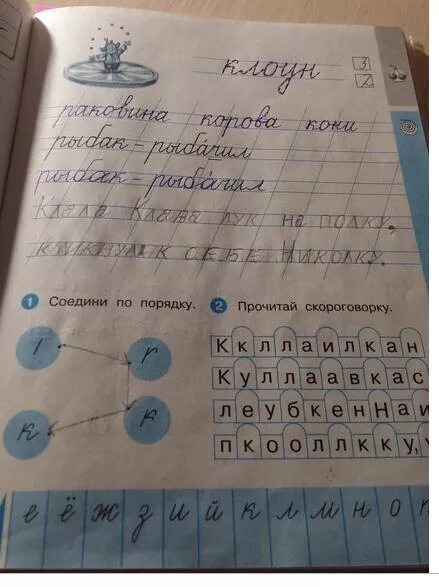 клоун
3
2
раковина корова кони
рыбак – рыба́чил
рыбак – рыба́чил
Клала Клава лук на полку,
кликнула к себе Николку.
1 Соедини по порядку. 2 Прочитай скороговорку.
К к л л а и л к а н
К у л л а а в к а с
л е у б к е н Н а и
п к о о л л к к у,
е ё ж з и й к л м н о п